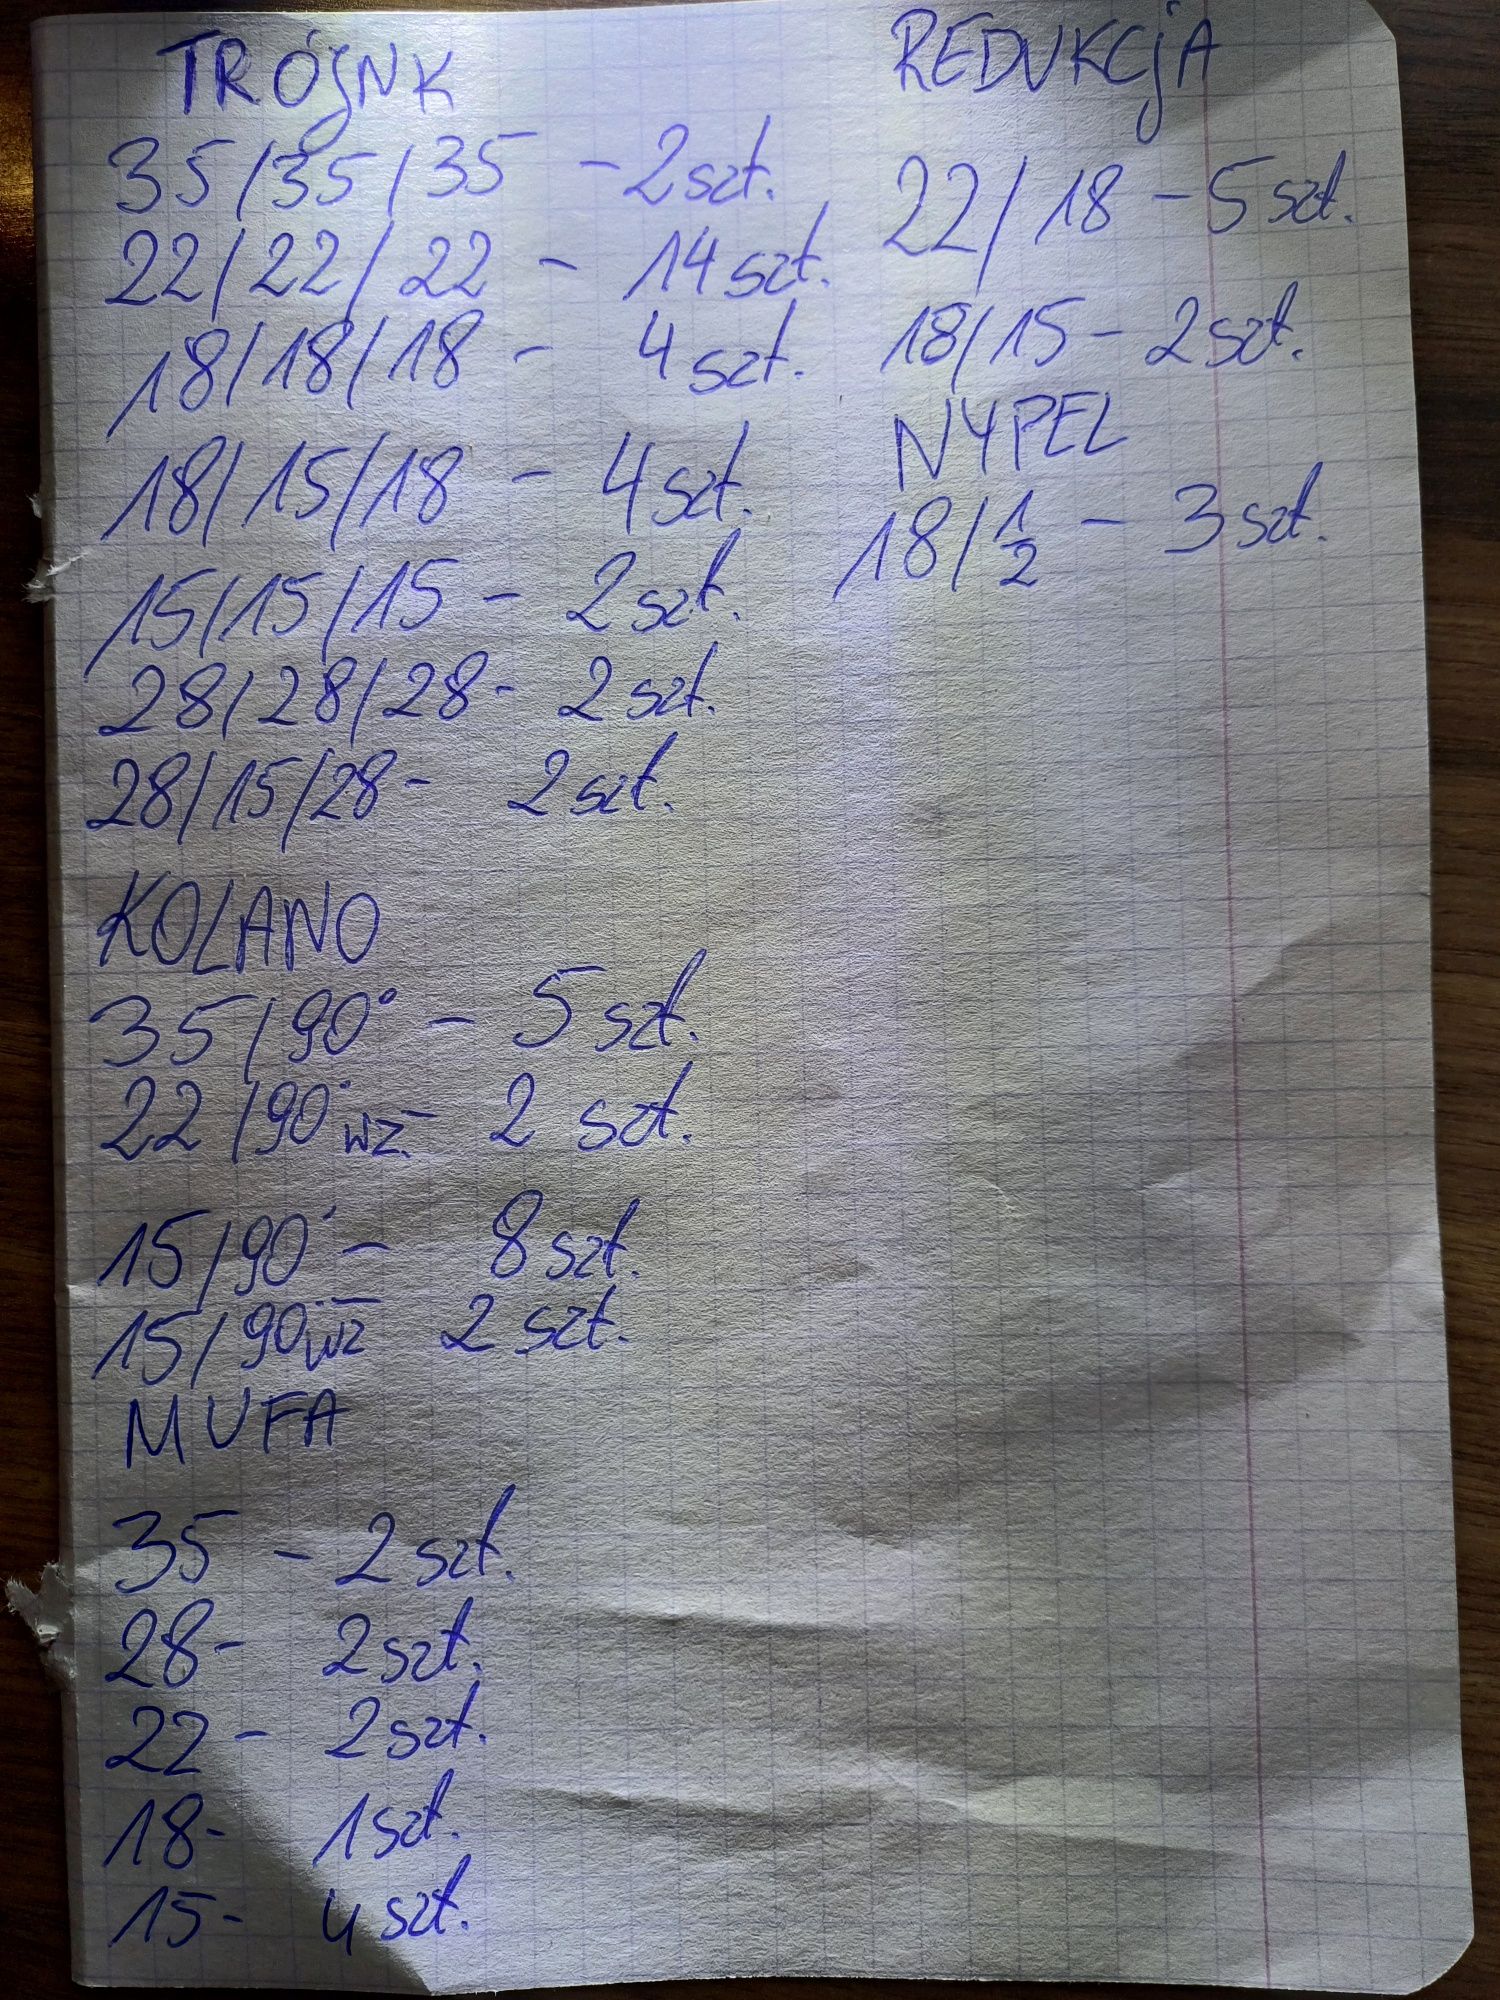 TRÓJNK
35/35/35 - 2 szt.
22/22/22 - 14 szt.
18/18/18 - 4 szt.
18/15/18 - 4 szt.
15/15/15 - 2 szt.
28/28/28 - 2 szt.
28/15/28 - 2 szt.
KOLANO
35/90° - 5 szt.
22/90° wz. - 2 szt.
15/90° - 8 szt.
15/90° wz - 2 szt.
MUFA
35 - 2 szt.
28 - 2 szt.
22 - 2 szt.
18 - 1 szt.
15 - 4 szt.
REDUKCjA
22/18 - 5 szt.
18/15 - 2 szt.
NYPEL
18/½ - 3 szt.